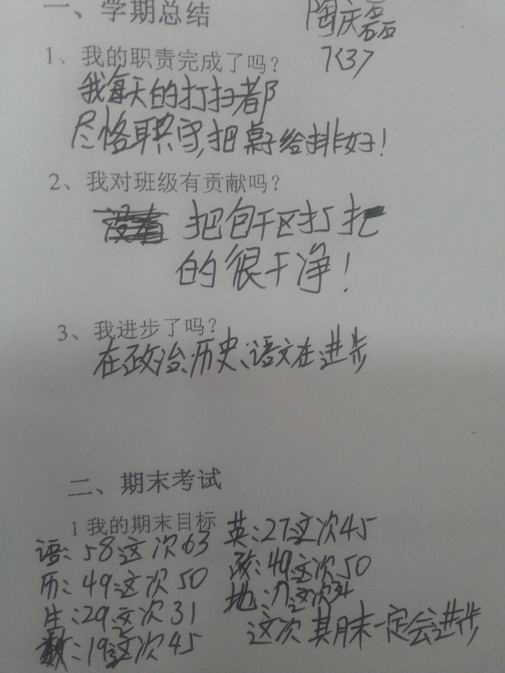 一、学期总结 陶庆磊
1、我的职责完成了吗? 7<37
我每天的打扫都
尽恪职守,把桌子给排好!
2、我对班级有贡献吗?
把包干区打把
的很干净!
3、我进步了吗?
在政治、历史、语文在进步
二、期末考试
1 我的期末目标 英:27这次45
语:58这次63 政:49这次50
历:49这次50 地:17这次34
生:29这次31 这次其月末一定会进步
数:19这次45